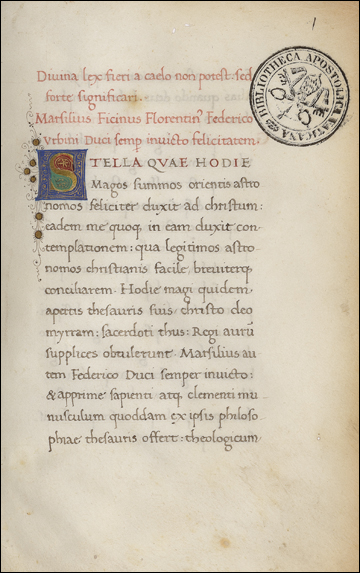 1
Divina lex fieri a caelo non potest. sed
forte significari.
Marsilius Ficinus Florentin⁹ Federico
Vrbini Duci semp invicto felicitatem.
STELLA QVAE HODIE
Magos summos orientis astro
nomos feliciter duxit ad christum:
eadem me quoq in eam duxit con
templationem: qua legitimos astro
nomos christianis facile breviterq
conciliarem. Hodie magi quidem,
apertis thesauris suis, christo deo
myrram: sacerdoti thus: Regi aurũ
supplices obtulerunt. Marsilius au
tem Federico Duci semper invicto:
& apprime sapienti atq clementi mu
nusculum quoddam ex ipsis philoso
phiae thesauris offert: theologicum
BIBLIOTHECA APOSTOLICA VATICANA